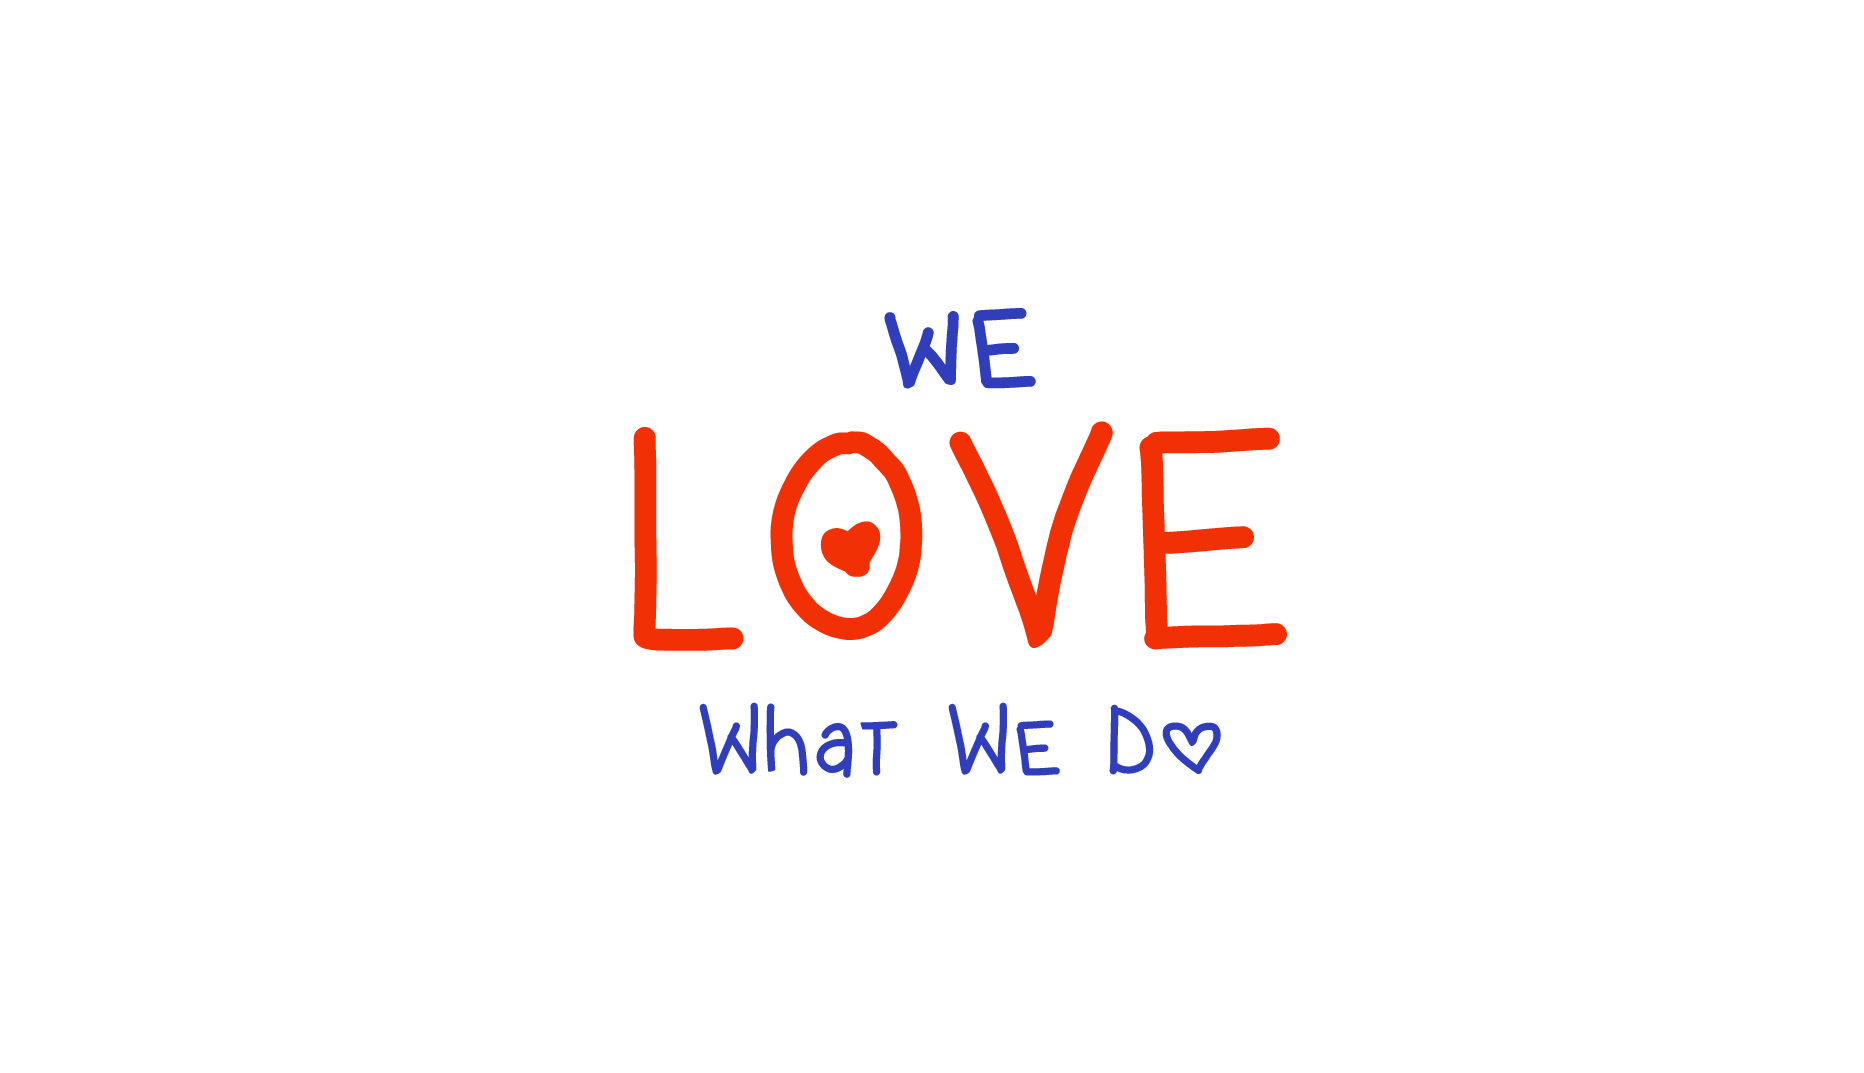 WE
LOVE
What WE D♡